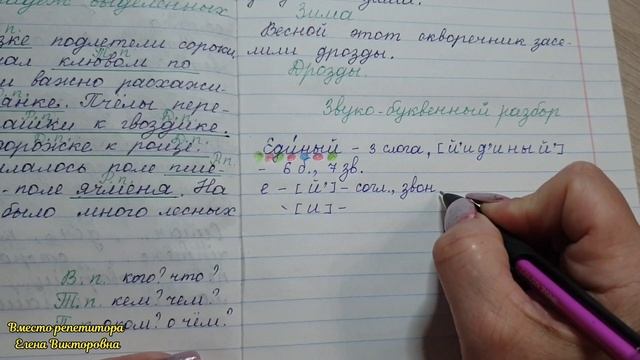 падеж выделенных
п.
зке подлетели сороки
Т.п.
ал клювом по
и важно расхажи-
анке. Пчёлы пере-
Д.п.
ашки к гвоздике.
Д.п.
орожке к роще.
Д.п.
малось поле пше-
- поле ячменя. На
было много лесных
В.п. кого? что?
Т.п. кем? чем?
о ком? о чём?
Зима
Весной этот скворечник засе-
лили дрозды.
Дрозды.
Звуко-буквенный разбор
Единый - 3 слога, [й'ид'иный']
- 6 б., 7 зв.
е - [й'] - согл., звон
\ [и] -
Вместо репетитора
Елена Викторовна